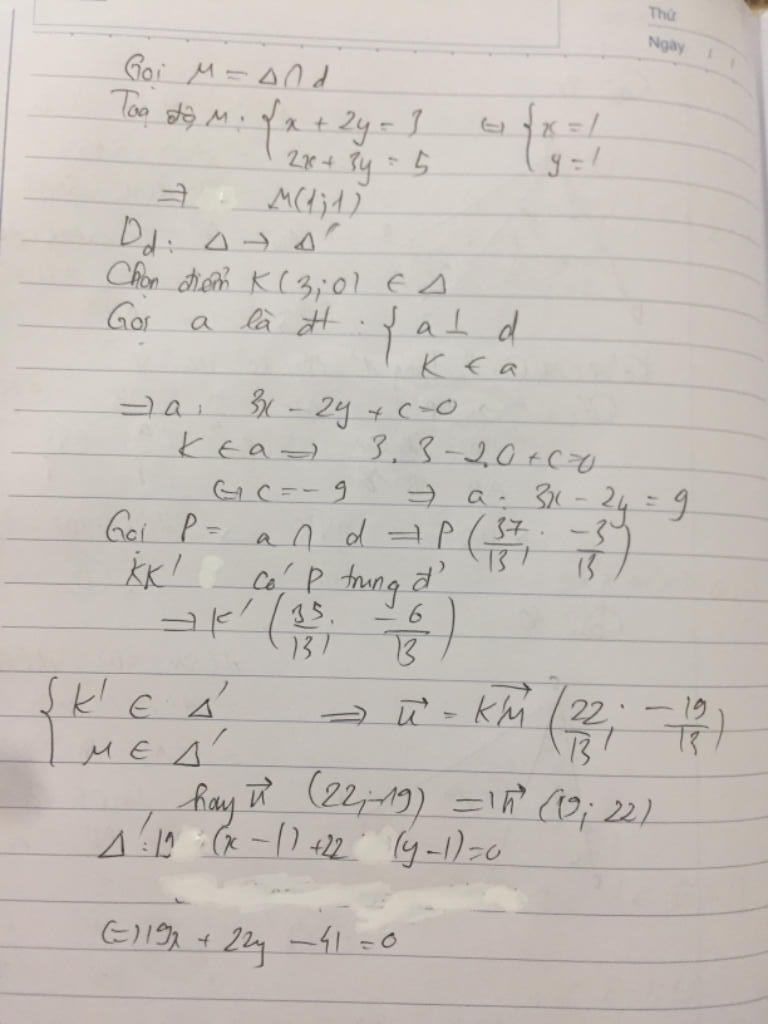 Thứ
Ngày
Gọi M = Δ ∩ d
Toạ độ M: { x + 2y = 3 ⇔ { x = 1
2x + 3y = 5 y = 1
⇒ M(1;1)
Dd: Δ → Δ'
Chọn điểm K(3;0) ∈ Δ
Gọi a là đt: { a ⊥ d
K ∈ a
⇒ a: 3x - 2y + c = 0
K ∈ a ⇒ 3.3 - 2.0 + c = 0
⇔ c = -9 ⇒ a: 3x - 2y = 9
Gọi P = a ∩ d ⇒ P (37/13; -3/13)
KK' có P trung đ'
⇒ K' (35/13; -6/13)
{ K' ∈ Δ' ⇒ u⃗ = K'M⃗ (22/13; -19/13)
M ∈ Δ'
hay u⃗ (22;-19) ⇒ n⃗ (19; 22)
Δ': 19 (x - 1) + 22 (y - 1) = 0
⇔ 19x + 22y - 41 = 0